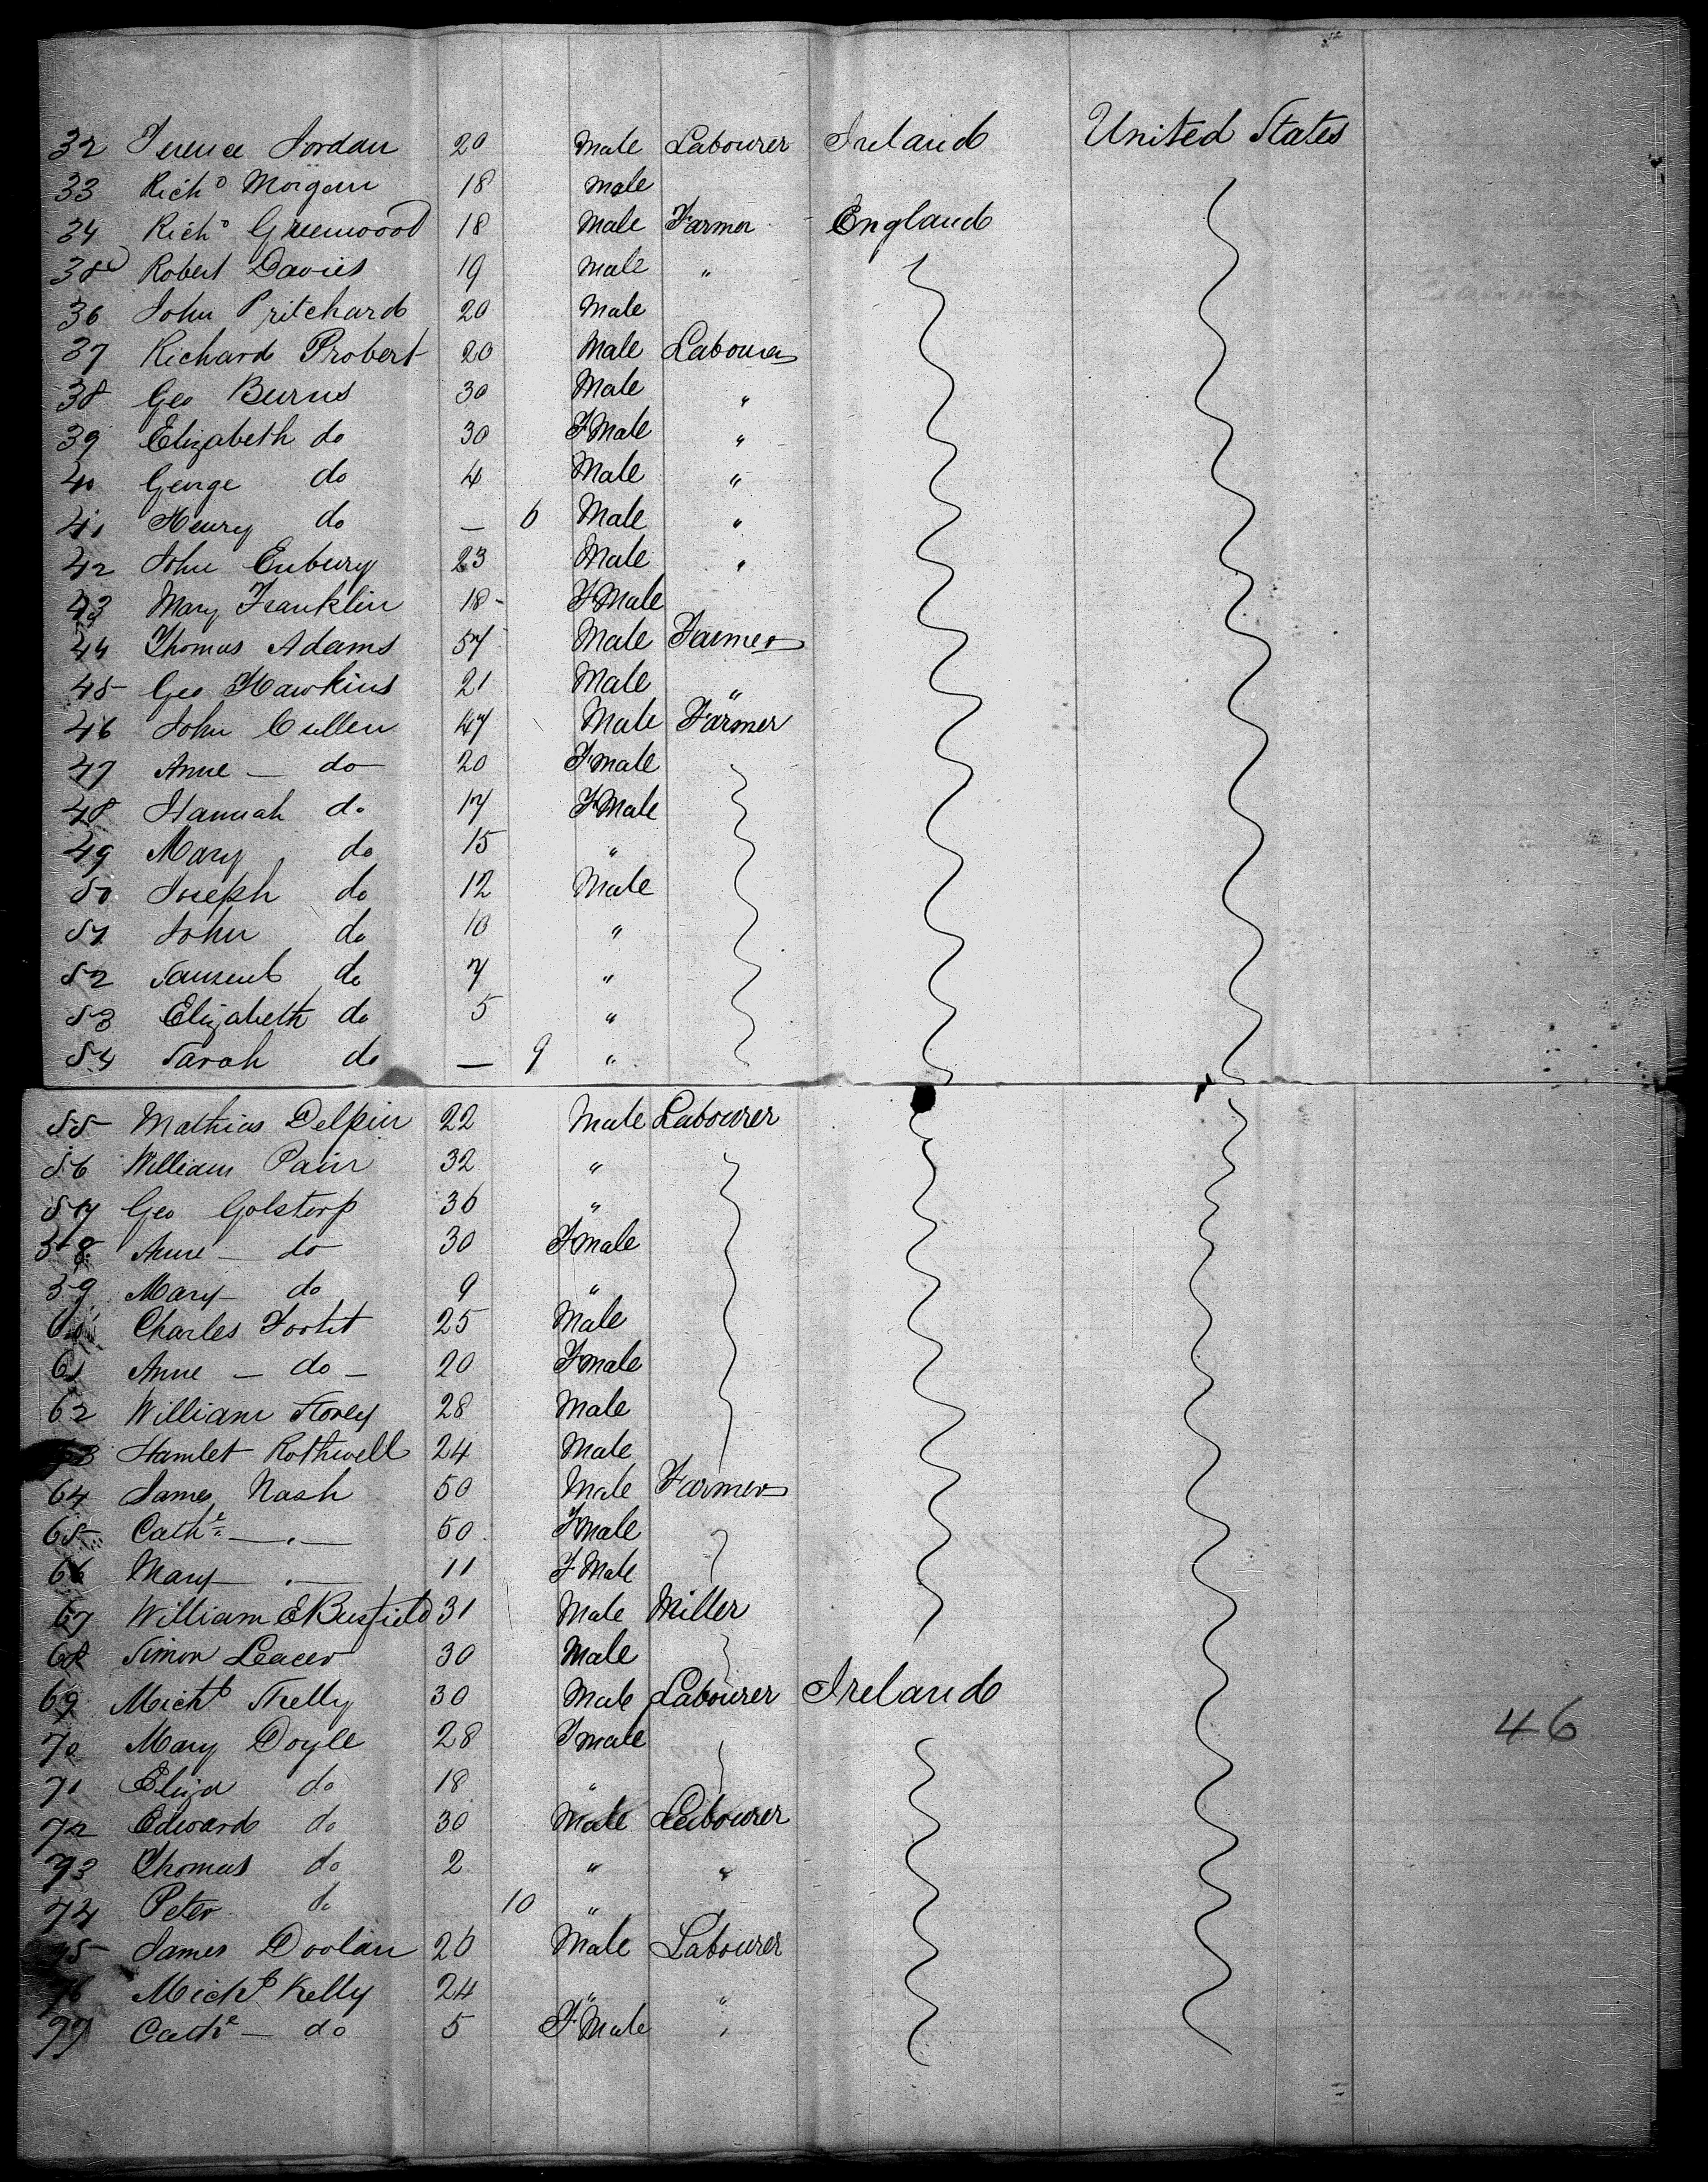 32 Terence Jordan 20 Male Labourer Ireland United States
33 Richd Morgan 18 Male
34 Richd Greenwood 18 Male Farmer England
35 Robert Davies 19 Male "
36 John Pritchard 20 Male
37 Richard Probert 20 Male Labourer
38 Geo Burns 30 Male "
39 Elizabeth do 30 FMale "
40 George do 4 Male "
41 Henry do — 6 Male "
42 John Enbury 23 Male "
43 Mary Franklin 18 - FMale
44 Thomas Adams 57 Male Farmer
45 Geo Hawkins 21 Male "
46 John Cullen 47 Male Farmer
47 Anne — do 20 Fmale
48 Hannah do 17 FMale
49 Mary do 15 "
50 Joseph do 12 Male
51 John do 10 "
52 do 7 "
53 Elizabeth do 5 "
54 Sarah do — 9 "
55 Mathias Delpin 22 Male Labourer
56 William Pain 32 "
57 Geo Golstorp 36 "
58 Anne — do 30 Fmale
59 Mary do 9 "
60 Charles 25 Male
61 Anne — do — 20 Fmale
62 William Storey 28 Male
63 Hamlet Rothwell 24 Male
64 James Nash 50 Male Farmer
65 Cathe — " — 50 Fmale
66 Mary — " — 11 FMale
67 William E Busfield 31 Male Miller
68 Simon 30 Male
69 Michl Skelly 30 Male Labourer Ireland
70 Mary Doyle 28 Fmale 46
71 Eliza do 18 "
72 Edward do 30 Male Labourer
73 Thomas do 2 " "
74 Peter do 10 "
75 James Doolan 26 Male Labourer
76 Michl Kelly 24 " "
77 Cathe — do 5 FMale "